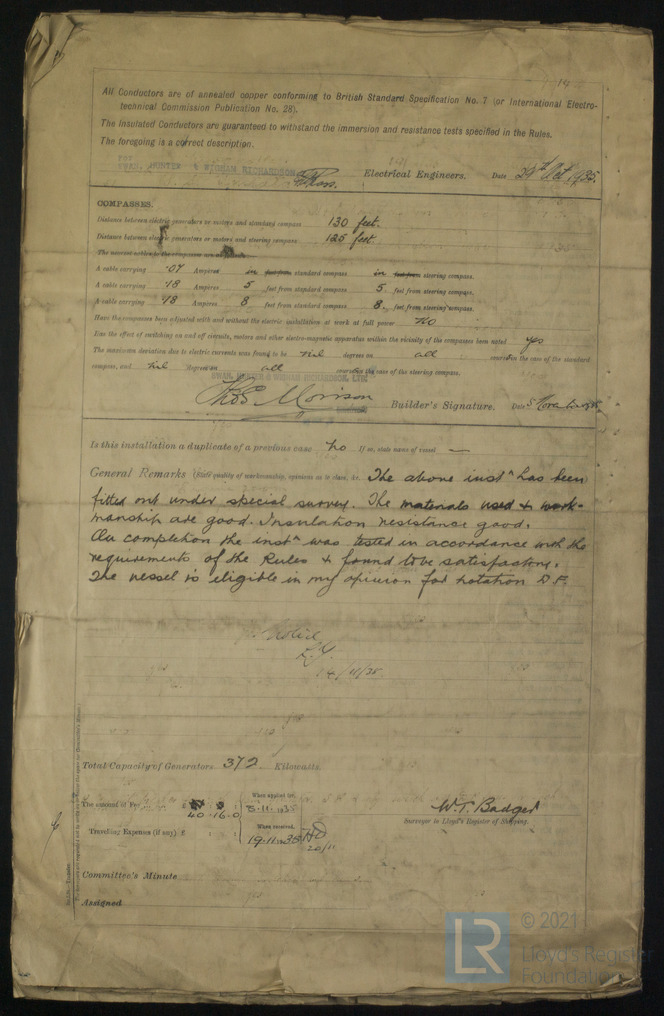 All Conductors are of annealed copper conforming to British Standard Specification No. 7 (or International Electro-
technical Commission Publication No. 28).
The Insulated Conductors are guaranteed to withstand the immersion and resistance tests specified in the Rules.
The foregoing is a correct description.
SWAN, HUNTER & WIGHAM RICHARDSON
Electrical Engineers. Date 29th Oct. 1935.
COMPASSES.
Distance between electric generators or motors and standard compass 130 feet.
Distance between electric generators or motors and steering compass 125 feet.
The nearest cables to the compasses are as follows
A cable carrying .07 Ampères in feet from standard compass in feet from steering compass.
A cable carrying .18 Ampères 5 feet from standard compass 5 feet from steering compass.
A cable carrying .18 Ampères 8 feet from standard compass 8 feet from steering compass.
Have the compasses been adjusted with and without the electric installation at work at full power No
Has the effect of switching on and off circuits, motors and other electro-magnetic apparatus within the vicinity of the compasses been noted yes
The maximum deviation due to electric currents was found to be nil degrees on all courses in the case of the standard
compass, and nil degrees on all courses in the case of the steering compass.
SWAN, HUNTER & WIGHAM RICHARDSON, LTD.
Thos Morison Builder's Signature. Date 5 Nov
Is this installation a duplicate of a previous case No If so, state name of vessel —
General Remarks (State quality of workmanship, opinions as to class, &c. The above instn has been
fitted out under special survey. The materials used & work-
manship are good. Insulation resistance good.
On completion the instn was tested in accordance with the
requirements of the Rules & found to be satisfactory.
The vessel is eligible in my opinion for notation D.F.
Noted
14/11/35.
Total Capacity of Generators 372 Kilowatts.
The amount of Fee £ 40.16.0
When applied for, 8.11.1935
Travelling Expenses (if any) £
When received, 19.11.1935
20/11
W.T. Badger
Surveyor to Lloyd's Register of Shipping.
Committee's Minute
Assigned
LR
© 2021
Lloyd's Register
Foundation